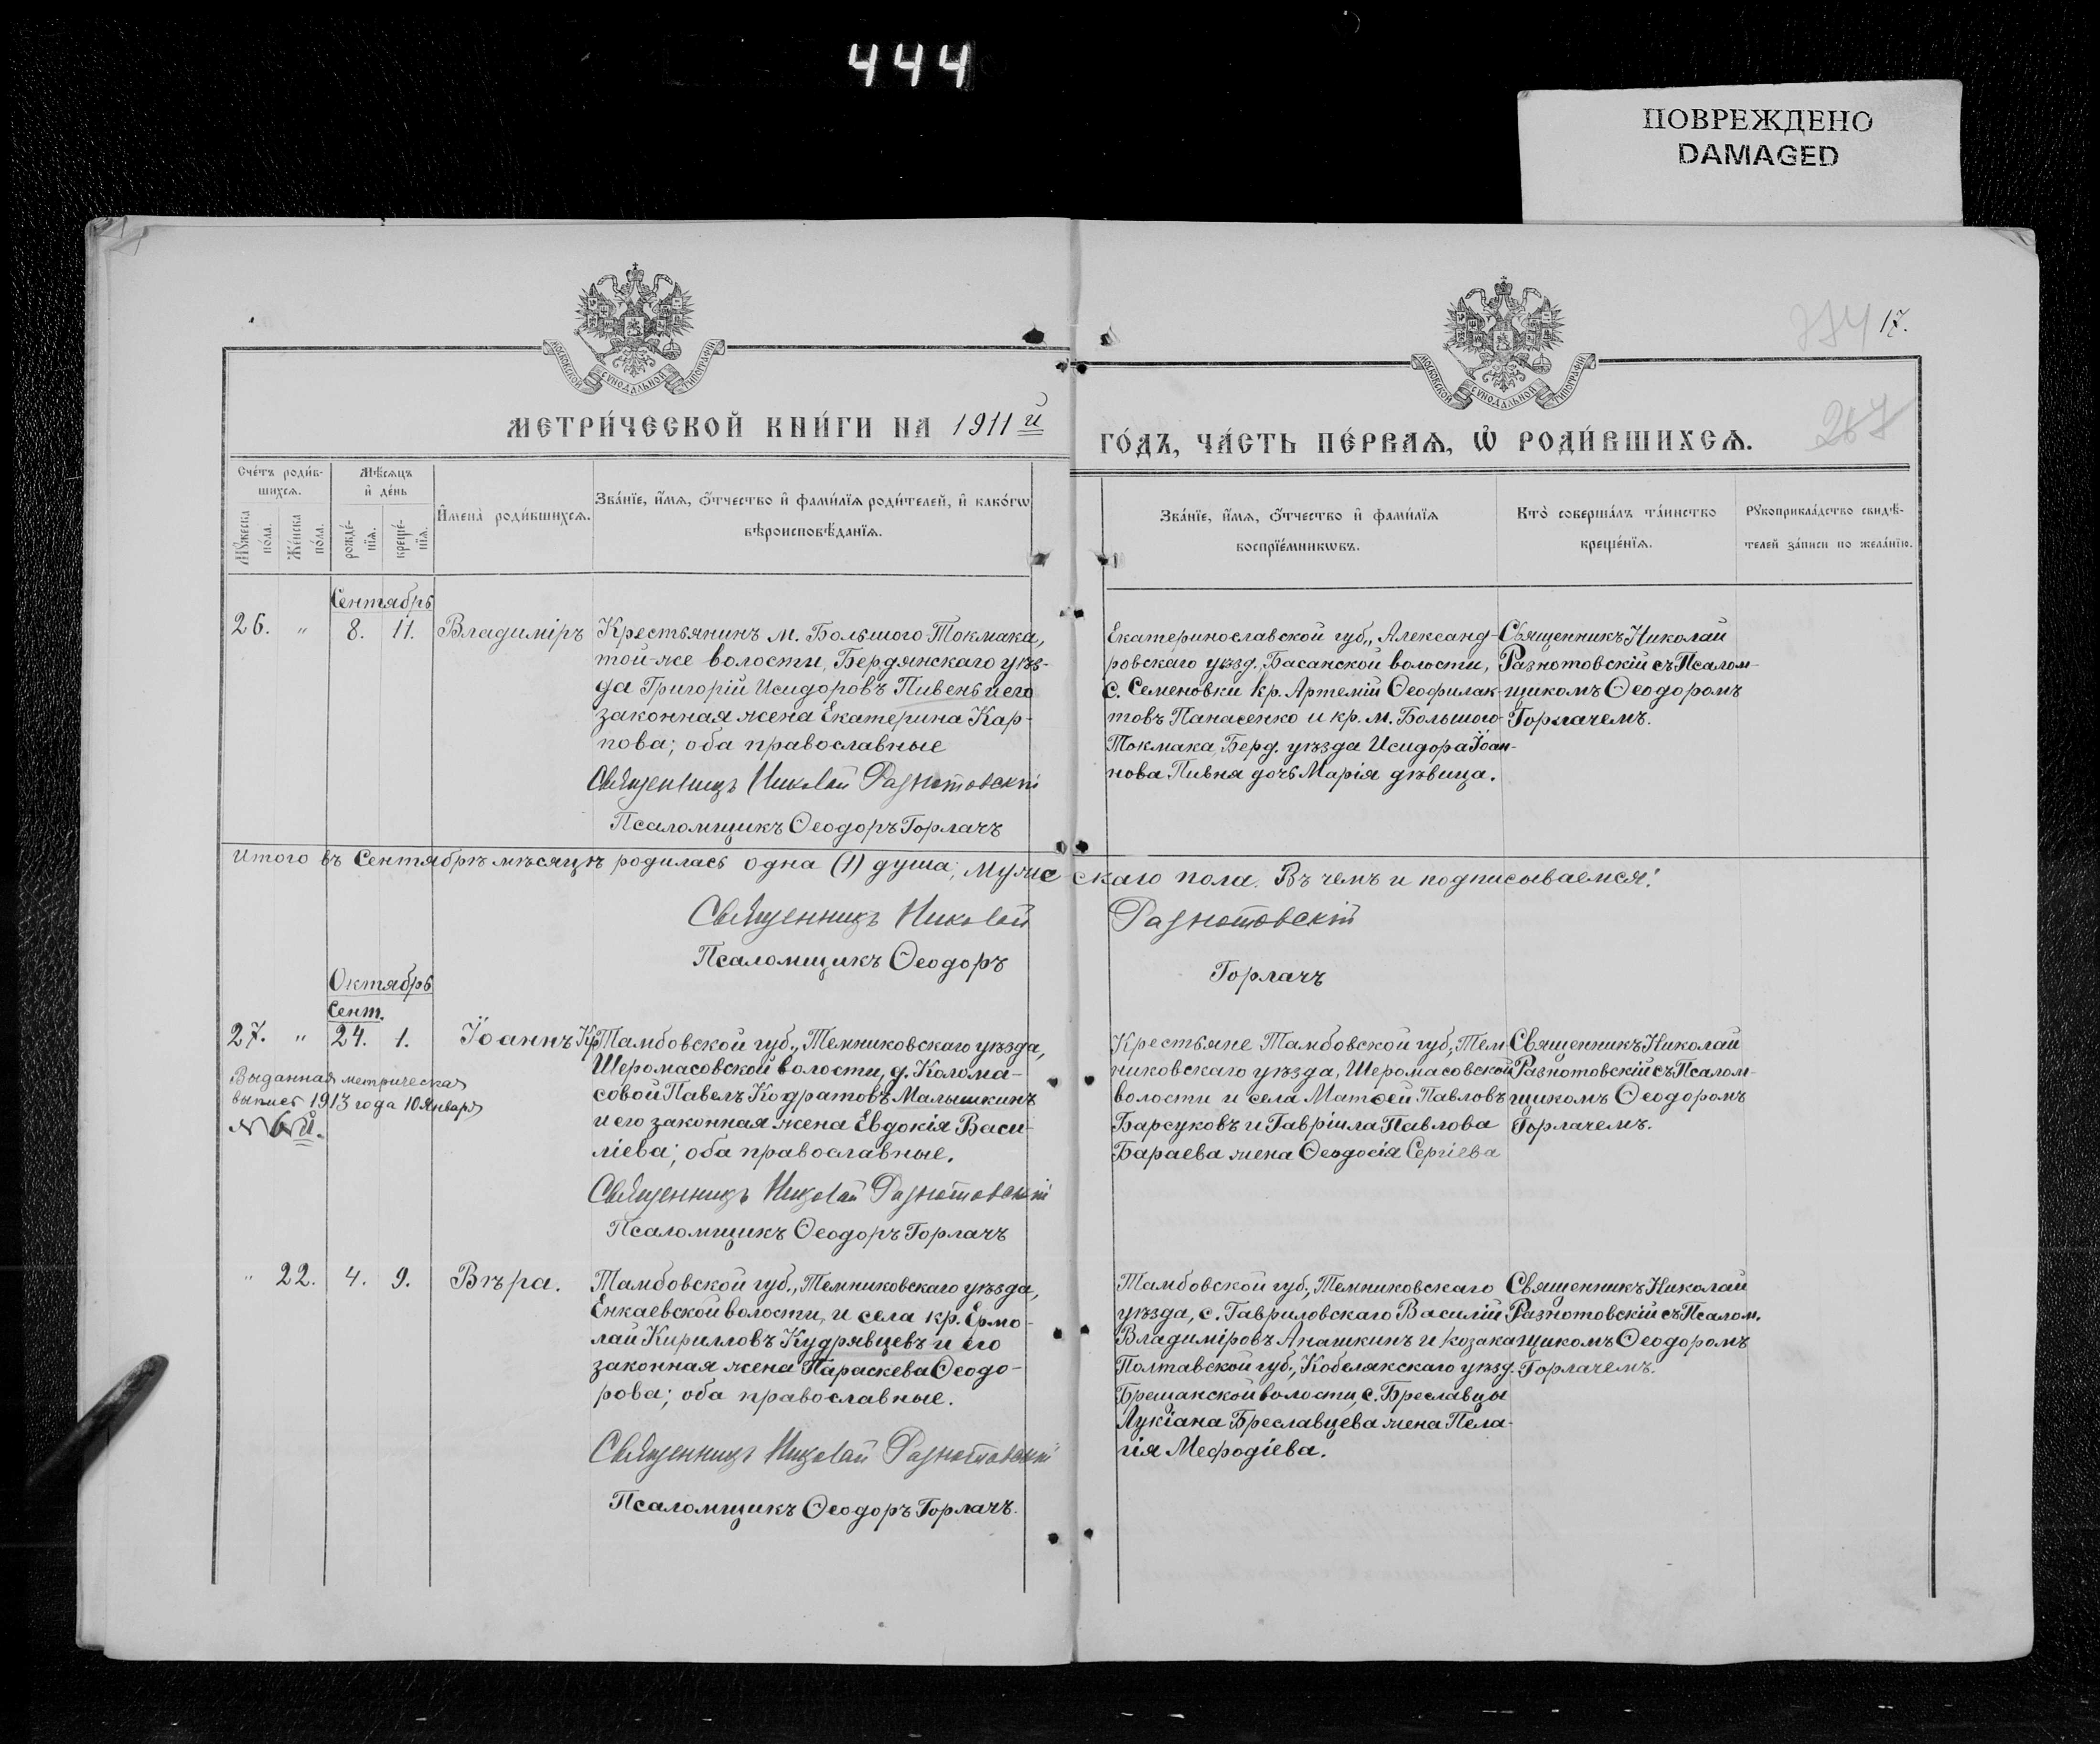 444
ПОВРЕЖДЕНО
DAMAGED
17.
267
МОСКОВСКОЙ СѴНОДАЛЬНОЙ ТИПОГРАФІИ
МОСКОВСКОЙ СѴНОДАЛЬНОЙ ТИПОГРАФІИ
МЕТРИ́ЧЕСКОЙ КНИ́ГИ НА 1911й
ГО́ДЪ, ЧА́СТЬ ПЕ́РВАѦ, Ѡ҆ РОДИ́ВШИХСѦ.
Сче́тъ роди́в-
шихсѧ.
Мꙋ́жеска
по́ла.
Же́нска
по́ла.
Мѣ́сѧцъ
и҆ де́нь
рожде́-
нїѧ.
креще́-
нїѧ.
И҆мена̀ роди́вшихсѧ.
Зва́нїе, и҆́мѧ, ѻ҆́тчество и҆ фами́лїѧ роди́телей, и҆ како́гѡ
вѣроисповѣ́данїѧ.
Зва́нїе, и҆́мѧ, ѻ҆́тчество и҆ фами́лїѧ
воспрїе́мникѡвъ.
Кто̀ соверша́лъ та́инство
креще́нїѧ.
Рꙋкоприкла́дство свидѣ́-
телей за́писи по жела́нїю.
Сентябрь
26. " 8. 11. Владиміръ
Крестьянинъ м. Большого Токмака,
той-же волости, Бердянскаго уѣз-
да Григорій Исидоровъ Пивень и его
законная жена Екатерина Кар-
пова; оба православные
Священникъ Николай Разнотовскій
Псаломщикъ Ѳеодоръ Горлачъ
Екатеринославской губ., Александ-
ровскаго уѣзд., Басанской волости,
с. Семеновки кр. Артемій Ѳеофилак-
товъ Панасенко и кр. м. Большого
Токмака, Берд. уѣзда Исидора Іоан-
нова Пивня дочь Марія дѣвица.
Священникъ Николай
Разнотовскій съ Псалом-
щикомъ Ѳеодоромъ
Горлачемъ.
Итого въ Сентябрѣ мѣсяцѣ родилась одна (1) душа, мужескаго пола. Въ чемъ и подписываемся:
Священникъ Николай Разнотовскій
Псаломщикъ Ѳеодоръ Горлачъ
Октябрь
Сент.
27. " 24. 1. Іоаннъ
Выданная метрическая
выпись 1913 года 10 Января
№ 6й.
Кр. Тамбовской губ., Темниковскаго уѣзда,
Шеромасовской волости, д. Колома-
совой Павелъ Кодратовъ Малышкинъ
и его законная жена Евдокія Васи-
ліева; оба православные.
Священникъ Николай Разнотовскій
Псаломщикъ Ѳеодоръ Горлачъ
Крестьяне Тамбовской губ., Тем
никовскаго уѣзда, Шеромасовской
волости и села Матѳей Павловъ
Барсуковъ и Гавріила Павлова
Бараева жена Ѳеодосія Сергіева
Священникъ Николай
Разнотовскій съ Псалом-
щикомъ Ѳеодоромъ
Горлачемъ.
" 22. 4. 9. Вѣра.
Тамбовской губ., Темниковскаго уѣзда,
Енкаевской волости, и села кр. Ермо-
лай Кирилловъ Кудрявцевъ и его
законная жена Параскева Ѳеодо-
рова; оба православные.
Священникъ Николай Разнотовскій
Псаломщикъ Ѳеодоръ Горлачъ.
Тамбовской губ., Темниковскаго
уѣзда, с. Гавриловскаго Василій
Владиміровъ Апашкинъ и козака
Полтавской губ., Кобелякскаго уѣзд.
Брешанской волости, с. Бреславцы
Лукіана Бреславцева жена Пела-
гія Мефодіева.
Священникъ Николай
Разнотовскій съ Псалом.
щикомъ Ѳеодоромъ
Горлачемъ.